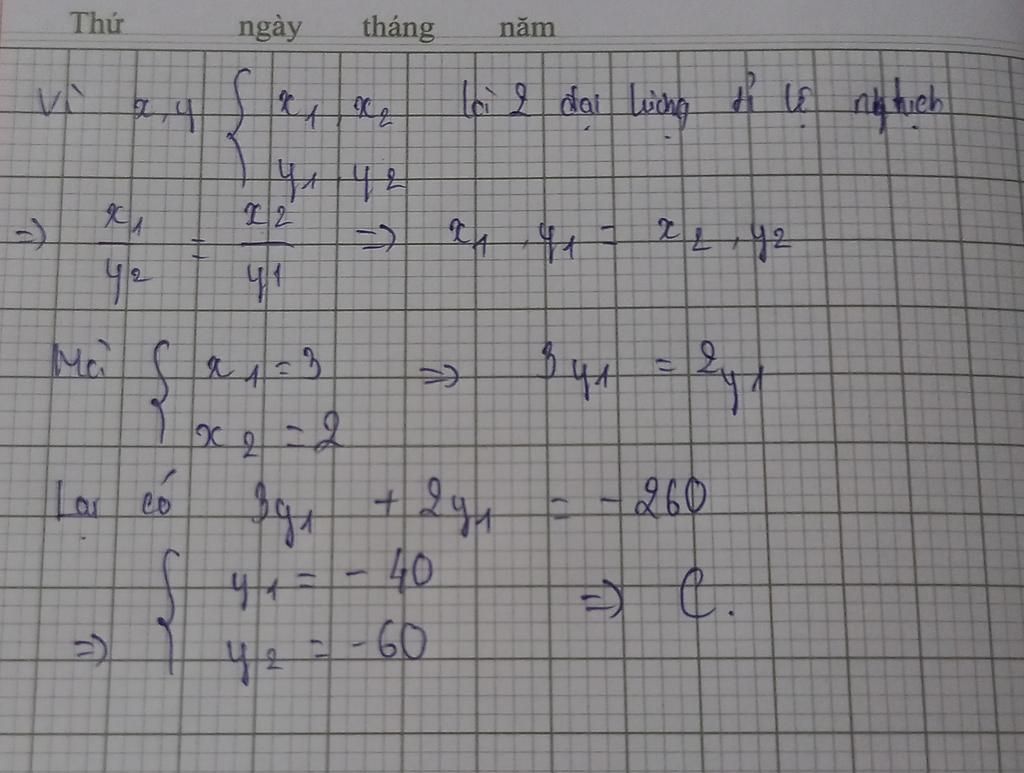 Thứ ngày tháng năm
Vì x, y { x1 x2 là 2 đại lượng tỉ lệ nghịch
y1 y2
=> x1/y2 = x2/y1 => x1 . y1 = x2 . y2
Mà { x1 = 3 => 3y1 = 2y1
x2 = 2
Lại có 3y1 + 2y1 = - 260
=> { y1 = - 40 => C.
y2 = - 60